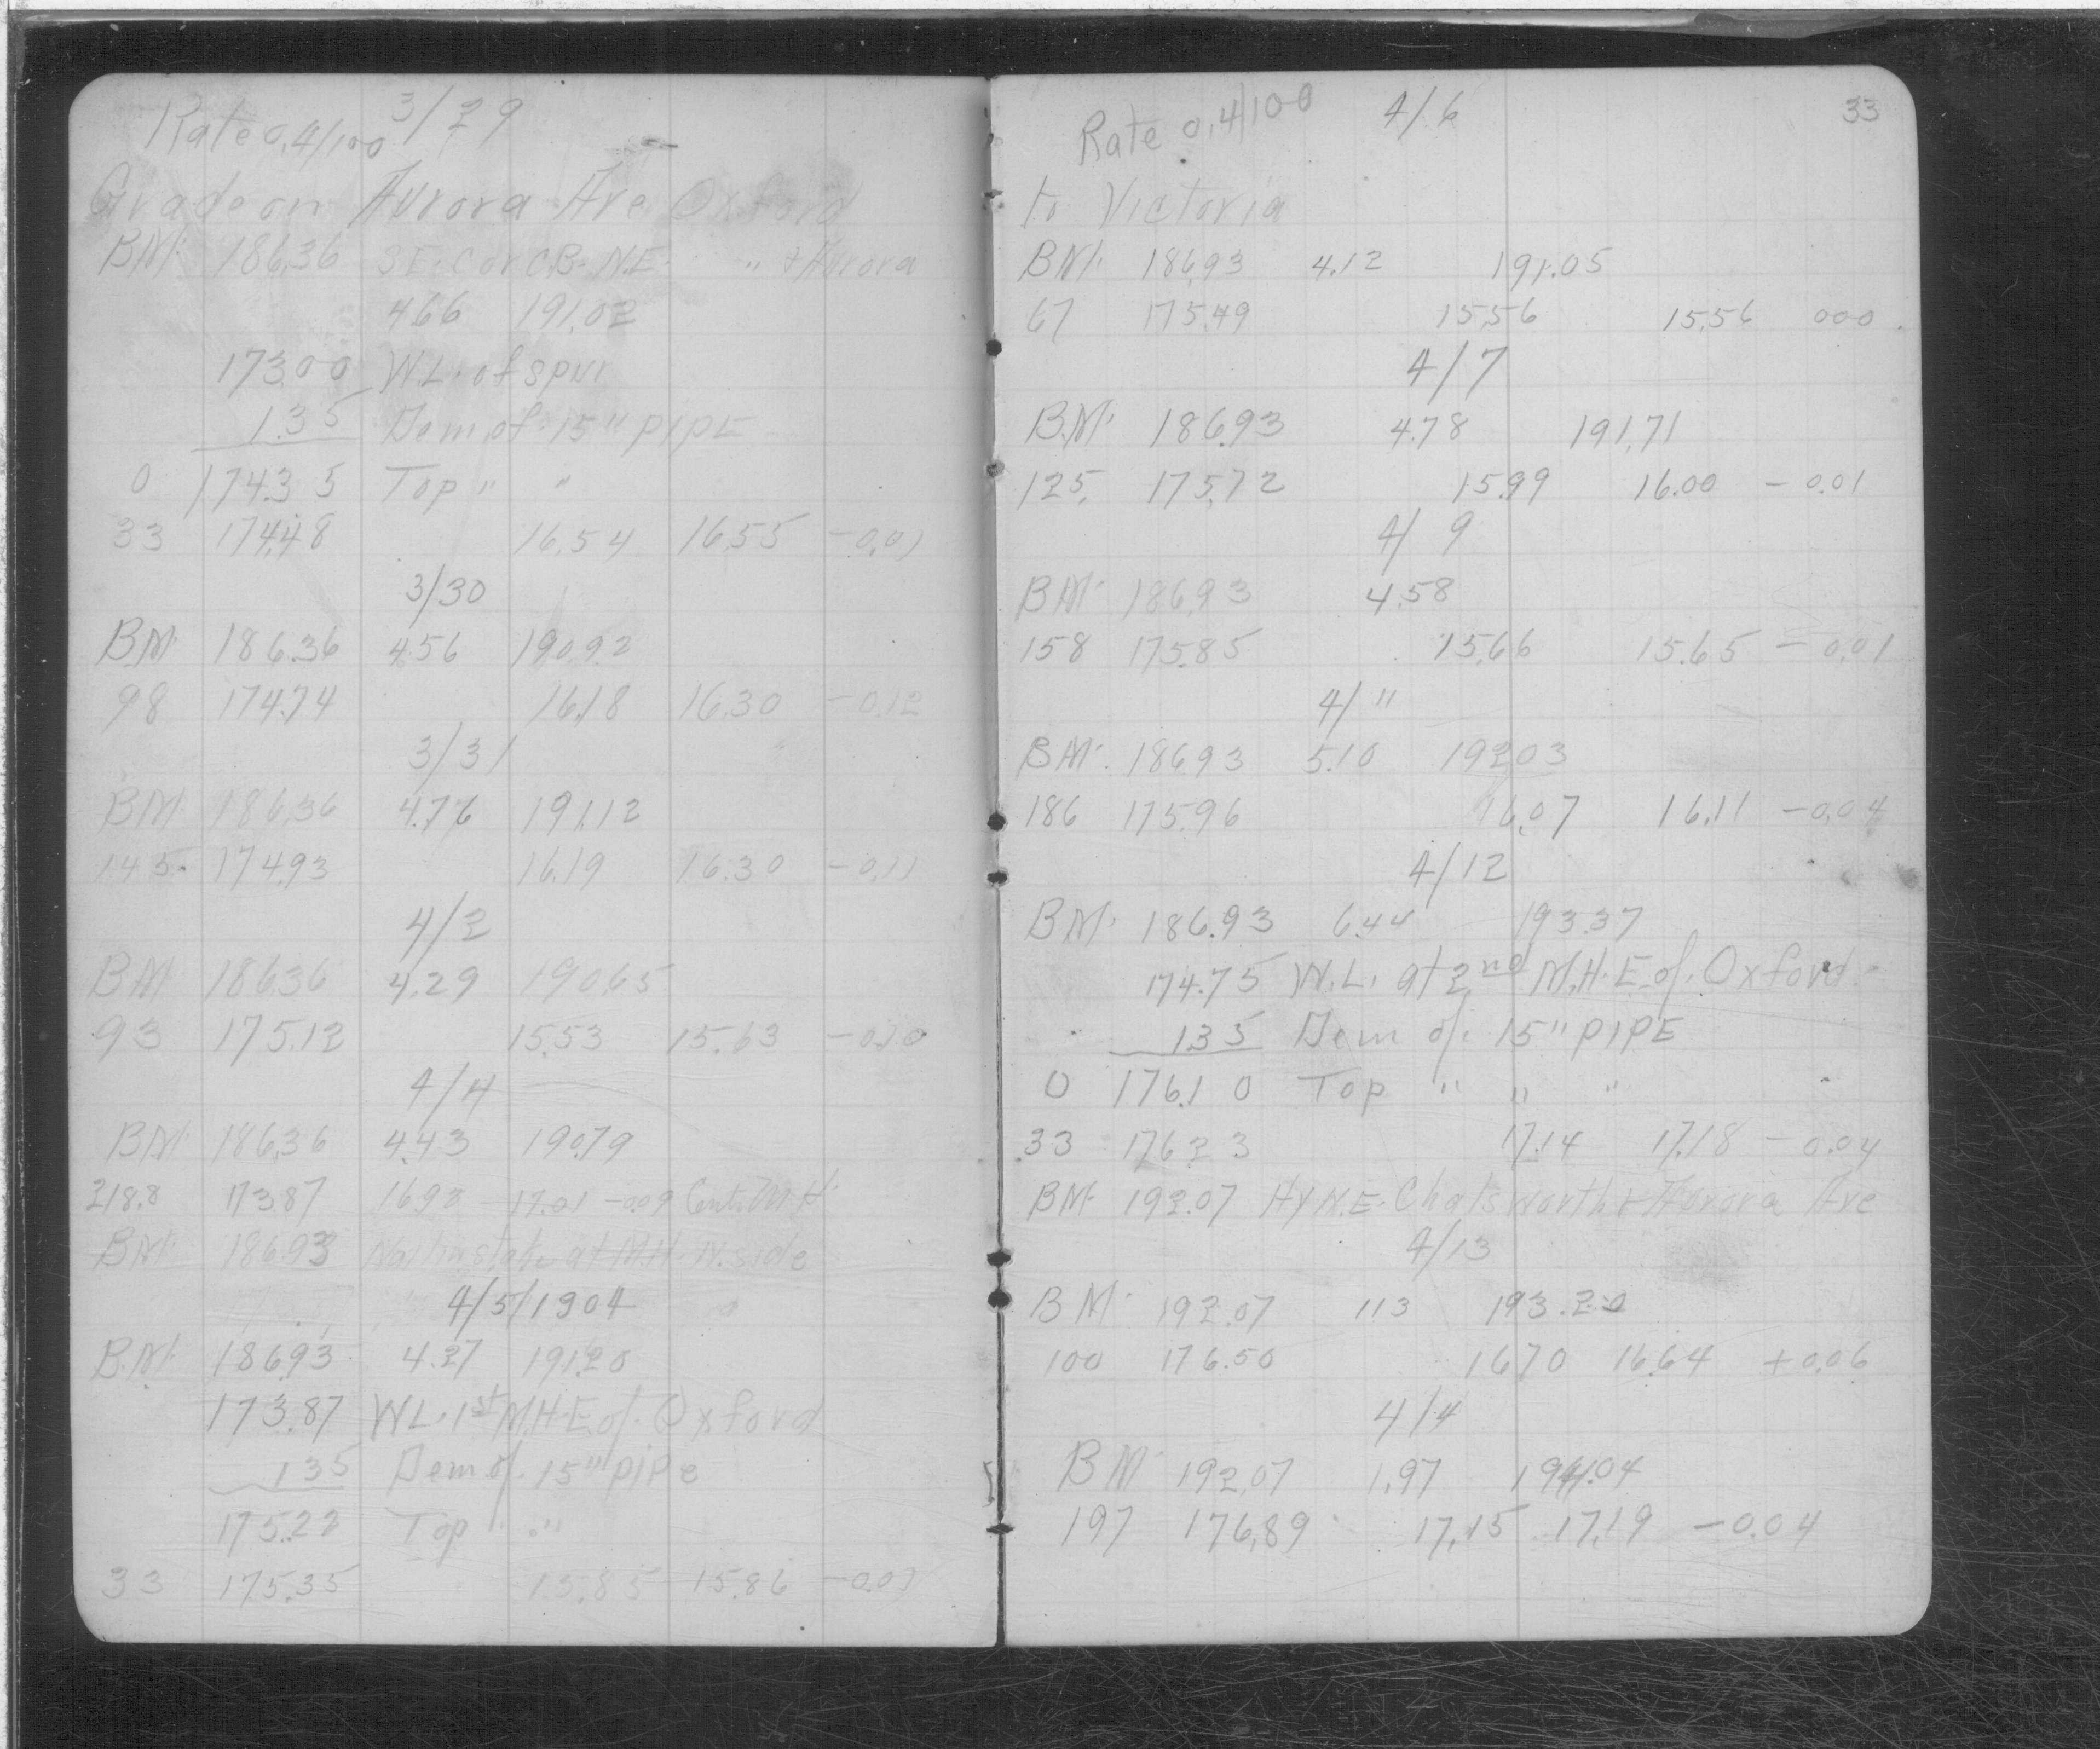 Rate 0.4/100 3/29
Grade on Aurora Ave. Oxford
BM. 186.36 S.E. Cor C.B. N.E. " & Aurora
4.66 191.02
173.00 W.L. of spur
1.35 Dem of 15" PIPE
0 174.35 Top " "
33 174.48 16.54 16.55 -0.01
3/30
BM 186.36 4.56 190.92
98 174.74 16.18 16.30 -0.12
3/31
BM 186.36 4.76 191.12
145. 174.93 16.19 16.30 -0.11
4/2
BM 186.36 4.29 190.65
93 175.12 15.53 15.63 -0.10
4/4
BM 186.36 4.43 190.79
218.8 173.87 16.92 17.01 -0.09 Cent. M.H.
BM. 186.93 Nail in at M.H. N. side
4/5/1904
B.M. 186.93 4.27 191.20
173.87 W.L. 1st M.H.E. of Oxford
1.35 Dem of. 15" PIPe
175.22 Top " "
33 175.35 15.85 15.86 -0.01
33
Rate 0.4/100 4/6
to Victoria
BM. 186.93 4.12 191.05
67 175.49 15.56 15.56 000
4/7
B.M. 186.93 4.78 191.71
125. 175.72 15.99 16.00 - 0.01
4/9
BM. 186.93 4.58
158 175.85 15.66 15.65 - 0.01
4/11
BM. 186.93 5.10 192.03
186 175.96 16.07 16.11 -0.04
4/12
BM. 186.93 6.44 193.37
174.75 W.L. at 2nd M.H.E. of. Oxford
1.35 Dem of. 15" PIPE
0 176.10 Top " " "
33 176.23 17.14 17.18 - 0.04
BM. 192.07 HY N.E. Chatsworth & Aurora Ave
4/13
BM. 192.07 113 193.20
100 176.50 16.70 16.64 +0.06
4/14
BM. 192.07 1.97 194.04
197 176.89 17.15 17.19 -0.04